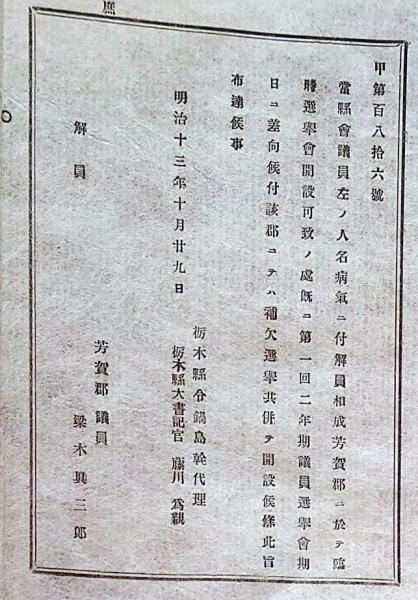 庶
甲第百八拾六號
當縣會議員左ノ人名病氣ニ付解員相成芳賀郡ニ於テ臨
時選擧會開設可致ノ處既ニ第一回二年期議員選擧會期
日ニ差向候付該郡ニテハ補欠選擧共併テ開設候條此旨
布達候事
明治十三年十月廿九日
栃木縣令鍋島幹代理
栃木縣大書記官 藤川爲親
解員
芳賀郡議員
梁木眞三郎